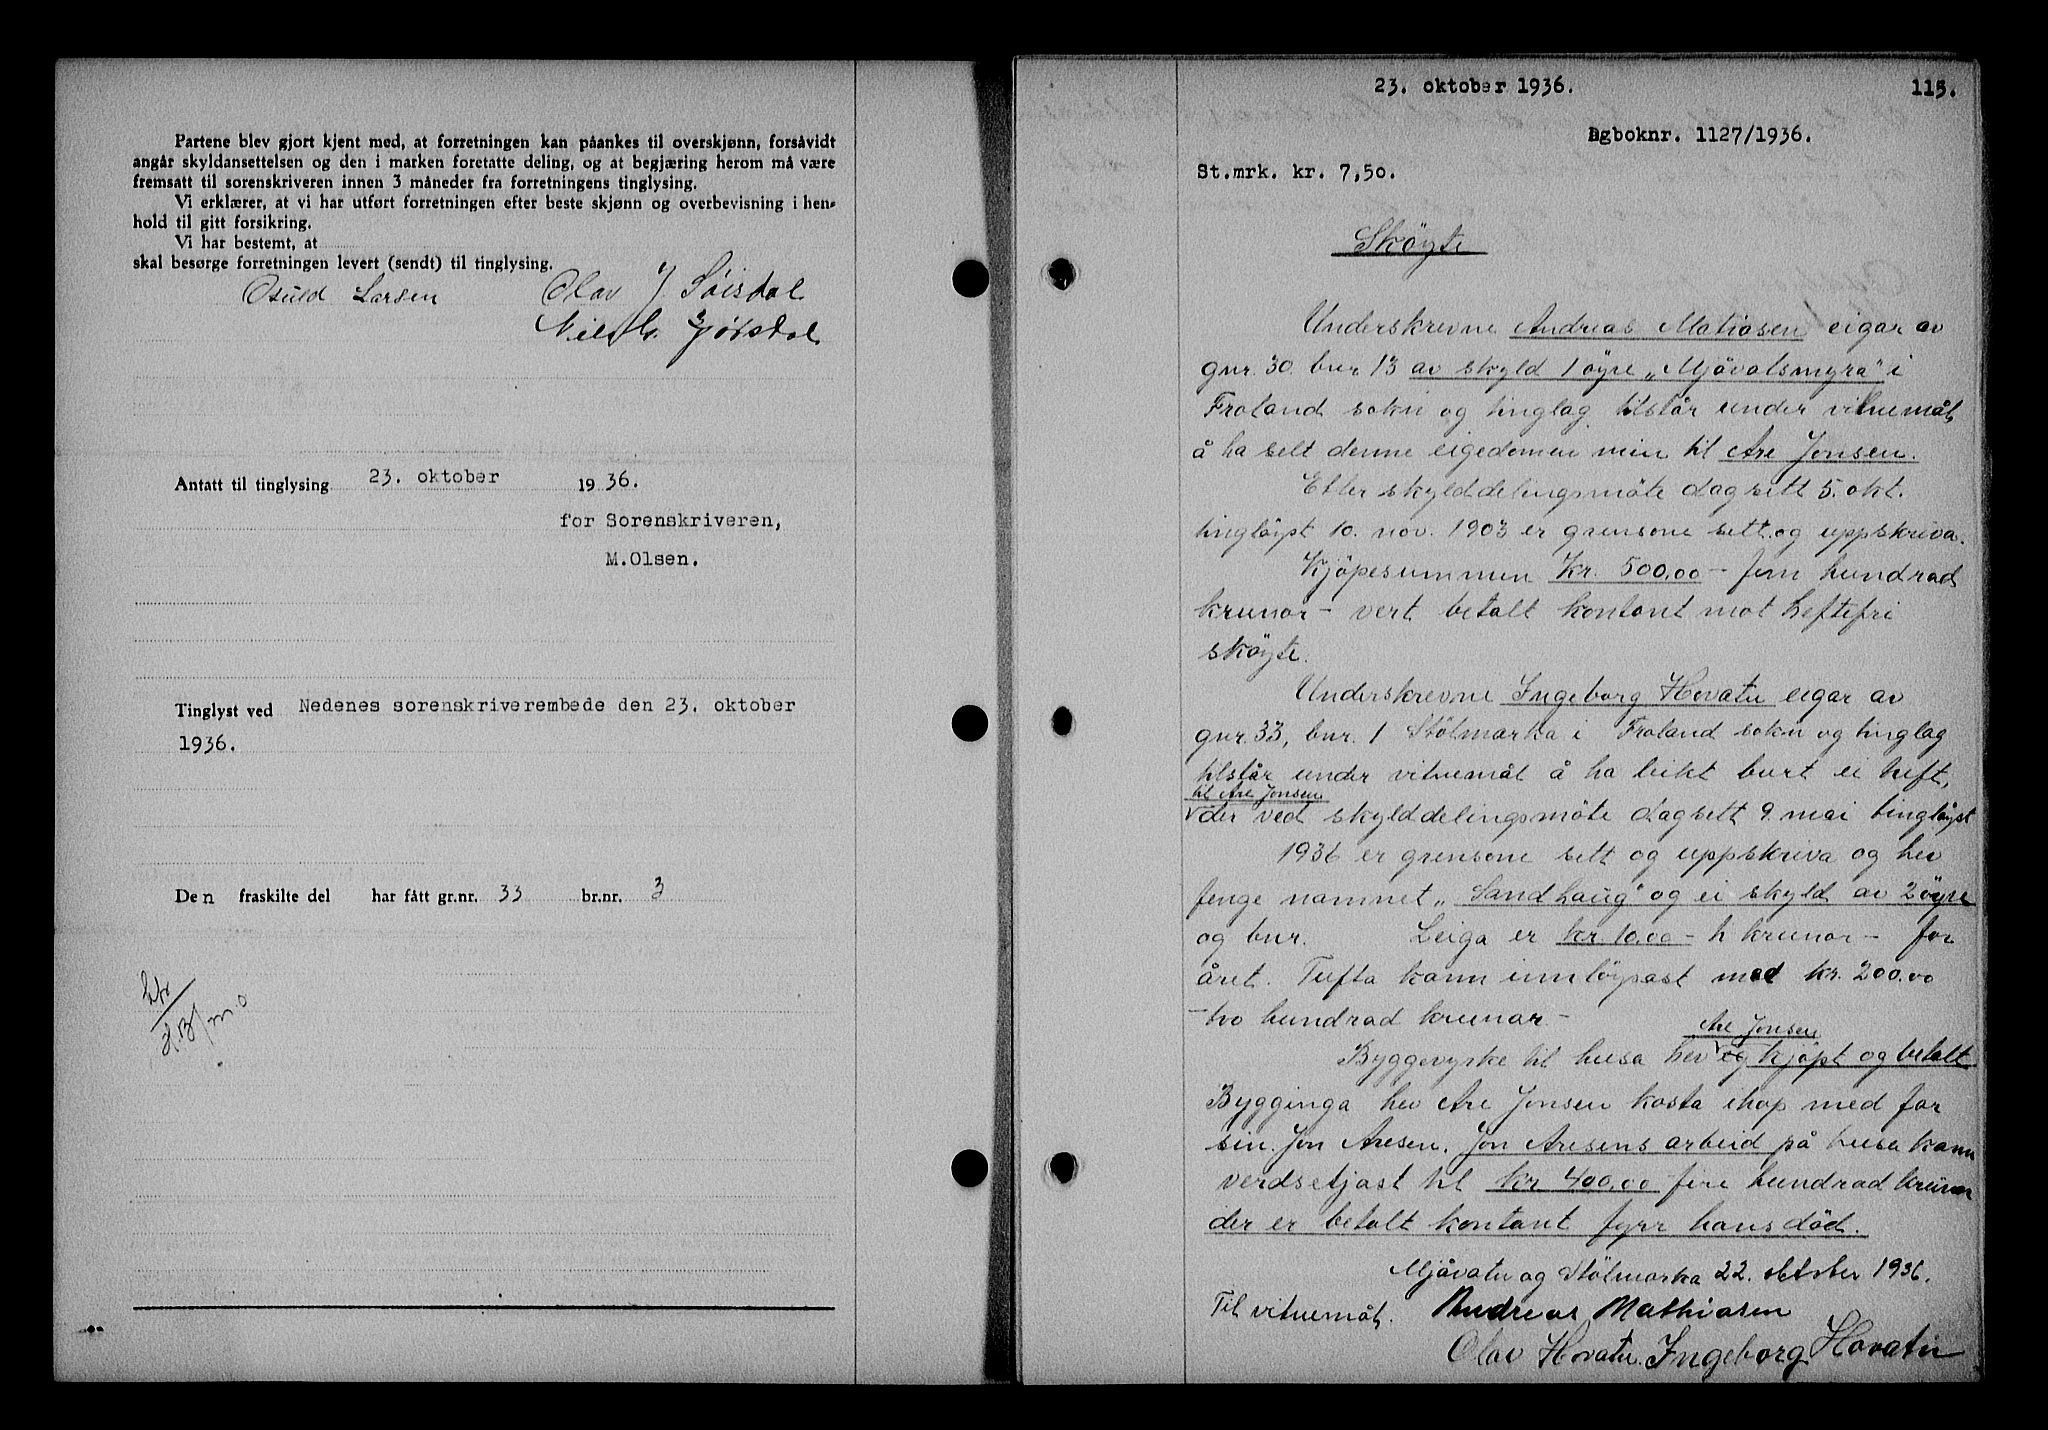 Partene blev gjort kjent med, at forretningen kan påankes til overskjønn, forsåvidt
angår skyldansettelsen og den i marken foretatte deling, og at begjæring herom må være
fremsatt til sorenskriveren innen 3 måneder fra forretningens tinglysing.
Vi erklærer, at vi har utført forretningen efter beste skjønn og overbevisning i hen-
hold til gitt forsikring.
Vi har bestemt, at
skal besørge forretningen levert (sendt) til tinglysing.
Osuld Larsen Olav J. Söisdal
Antatt til tinglysing 23. oktober 1936.
for Sorenskriveren,
M.Olsen.
Tinglyst ved Nedenes sorenskriverembede den 23. oktober
1936.
Den fraskilte del har fått gr.nr. 33 br.nr. 3
23. oktober 1936. 115.
Dgboknr. 1127/1936.
St.mrk. kr. 7,50.
Sköyte
Underskrevne Andreas Matiasen eigar av
gnr. 30. bnr 13 av skyld 1 öyre „Mjåvatsmyra" i
Froland sokn og tinglag tilstår under vitnemål
å ha selt denne eigedomen min til Are Jonsen.
Etter skylddelingsmöte dagsett 5. okt.
tinglöyst 10. nov. 1903 er grensone sett og uppskriva.
Kjöpesummen Kr. 500,00 – fem hundrad
krunor – vert betalt kontant mot heftefri
sköyte.
Underskrevne Ingeborg Hovatn eigar av
gnr. 33, bnr. 1 Stölmarka i Froland sokn og tinglag
tilstår under vitnemål å ha leikt burt ei tuft,
til Are Jonsen
der ved skylddelingsmöte dagsett 9. mai tinglöyst
1936 er grensone sett og uppskriva og hev
fenge namnet „Sandhaug" og ei skyld av 2 öyre
og bnr. Leiga er kr. 10,00 – ti krunor – for
året. Tufta kann innlöysast med kr. 200.00
– tvo hundrad krunar –
Are Jonsen
Byggevyrke til husa hev eg kjöpt og betalt
Bygginga hev Are Jonsen kosta ihop med far
sin Jon Aresen. Jon Aresens arbeid på husa kann
verdsetjast til kr 400,00 fire hundrad krunor
der er betalt kontant fyrr hans död.
Mjåvatn og Stölmarka 22. oktober 1936.
Til vitnemål. Andreas Mathiasen
Olav Hovatn. Ingeborg Hovatn